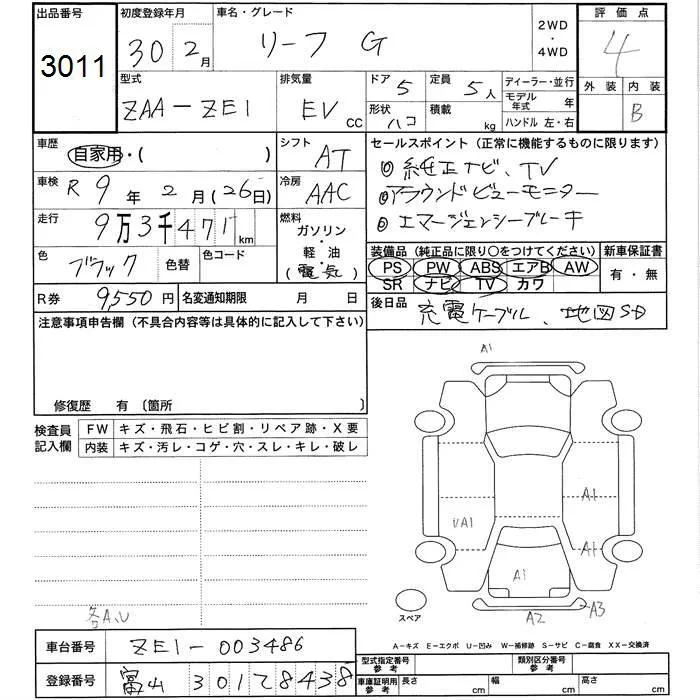 出品番号 初度登録年月 車名・グレード 2WD・4WD 評価点
3011 30 2月 リーフ G 4
型式 排気量 ドア 5 定員 5人 ディーラー・並行 外装 内装
ZAA-ZE1 EV cc 形状 ハコ 積載 kg モデル年式 年 B
ハンドル 左・右
車歴 自家用・( ) シフト AT セールスポイント(正常に機能するものに限ります)
◎純正ナビ、TV
車検 R 9年 2月(26日) 冷房 AAC ◎アラウンドビューモニター
走行 9万3千471km 燃料 ガソリン・軽油(電気) ◎エマージェンシーブレーキ
色 ブラック 色替 色コード 装備品(純正品に限り○をつけてください) 新車保証書
PS PW ABS エアB AW 有・無
SR ナビ TV カワ
R券 9,550円 名変通知期限 月 日 後日品 充電ケーブル、地図SD
注意事項申告欄(不具合内容等は具体的に記入して下さい)
A1
修復歴 有〔箇所 〕
検査員記入欄 FW キズ・飛石・ヒビ割・リペア跡・X要
内装 キズ・汚レ・コゲ・穴・スレ・キレ・破レ
A1
UA1 A1
A1
スペア A2 A3
各A、U
車台番号 ZE1-003486 A-キズ E-エクボ U-凹み W-補修跡 S-サビ C-腐食 XX-交換済
型式指定番号 参考 類別区分番号 参考
登録番号 富山 301 に 8438 車庫証明用 参考 長さ cm 幅 cm 高さ cm